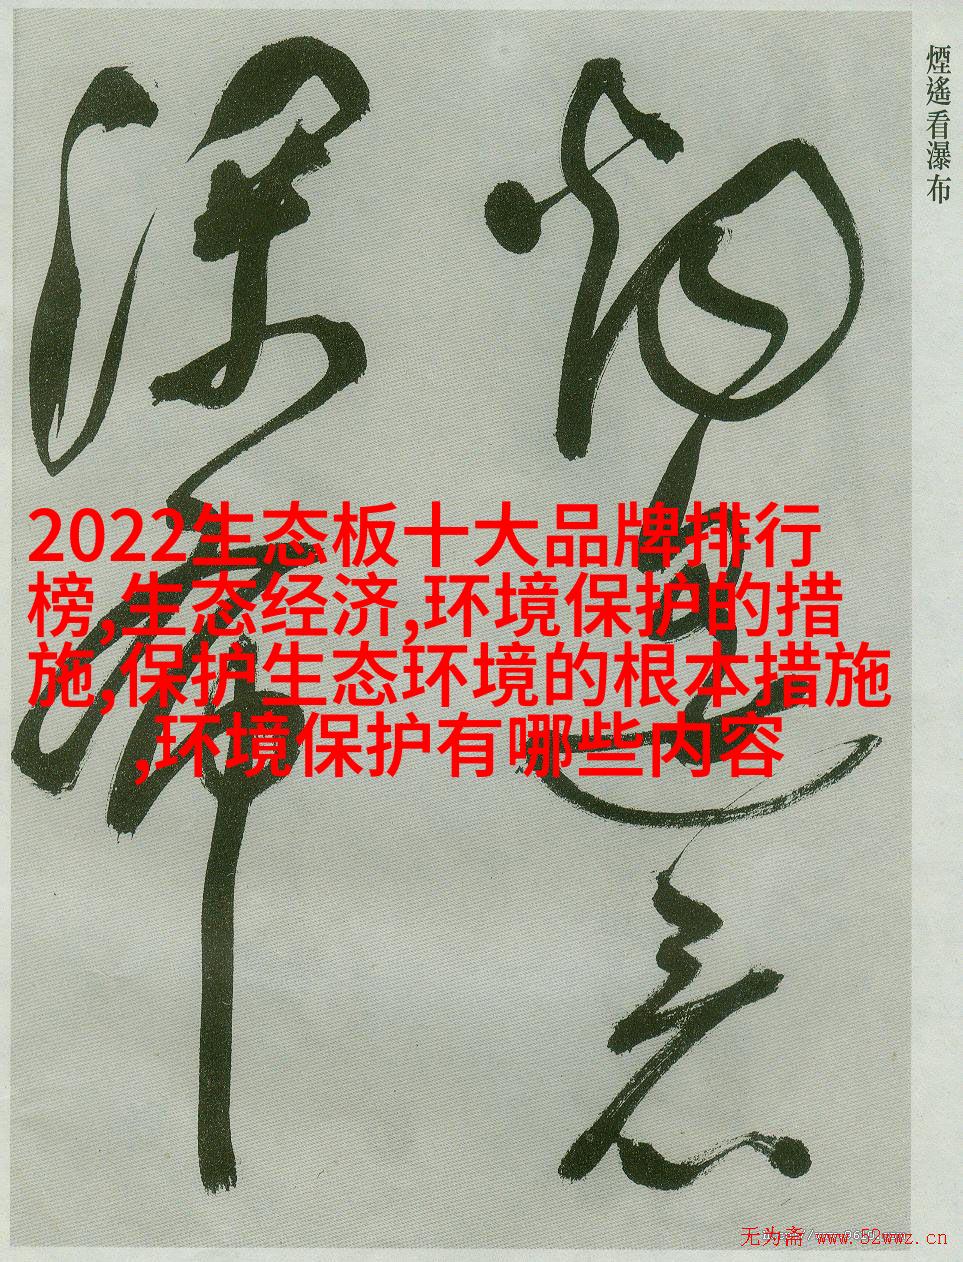 煙遙看瀑布
2022生态板十大品牌排行
榜,生态经济,环境保护的措
施,保护生态环境的根本措施
,环境保护有哪些内容
无为斋 www.52wwz.cn